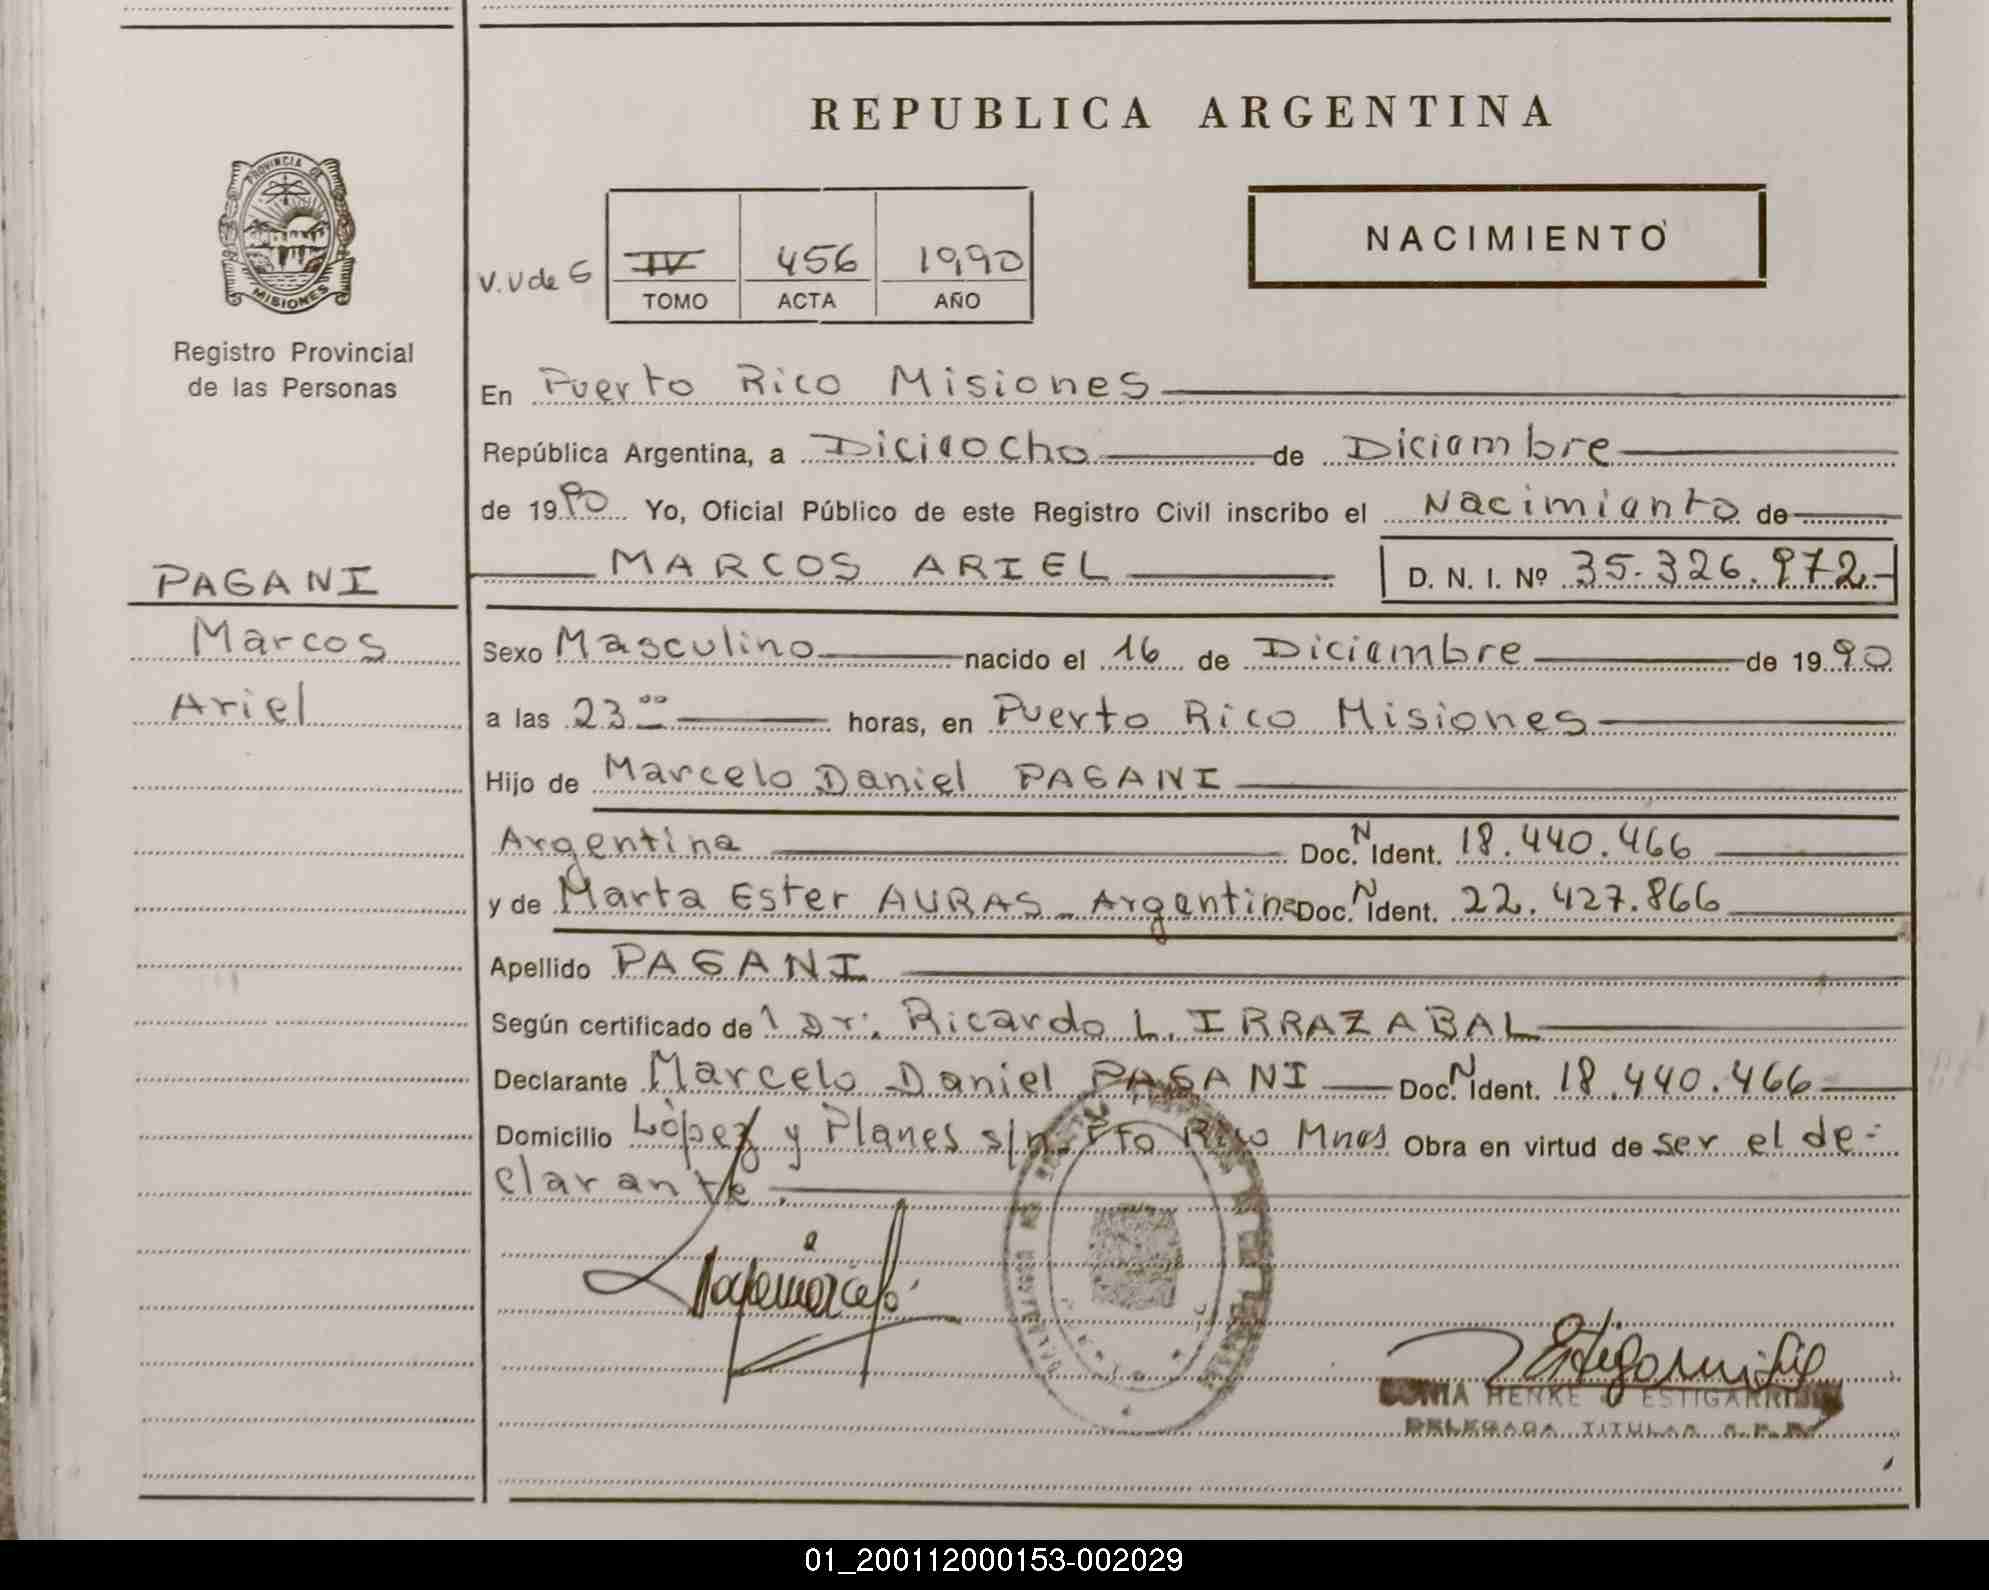 REPUBLICA ARGENTINA
PROVINCIA DE MISIONES
Registro Provincial
de las Personas
NACIMIENTO
V.V de G
IV 456 1990
TOMO ACTA AÑO
En Puerto Rico Misiones
República Argentina, a Dieciocho de Diciembre
de 1990 Yo, Oficial Público de este Registro Civil inscribo el Nacimiento de
MARCOS ARIEL D. N. I. Nº 35.326.972.-
PAGANI
Marcos
Ariel
Sexo Masculino nacido el 16 de Diciembre de 1990
a las 23 00 horas, en Puerto Rico Misiones
Hijo de Marcelo Daniel PAGANI
Argentina Doc. N Ident. 18.440.466
y de Marta Ester AURAS - Argentina Doc. N Ident. 22.427.866
Apellido PAGANI
Según certificado de l Dr. Ricardo L. IRRAZABAL
Declarante Marcelo Daniel PAGANI Doc. N Ident. 18.440.466
Domicilio López y Planes s/n Pto Rico Mnes Obra en virtud de ser el de-
clarante.
SONIA HENKE ESTIGARRIBIA
DELEGADA TITULAR R.P.P.
01_200112000153-002029